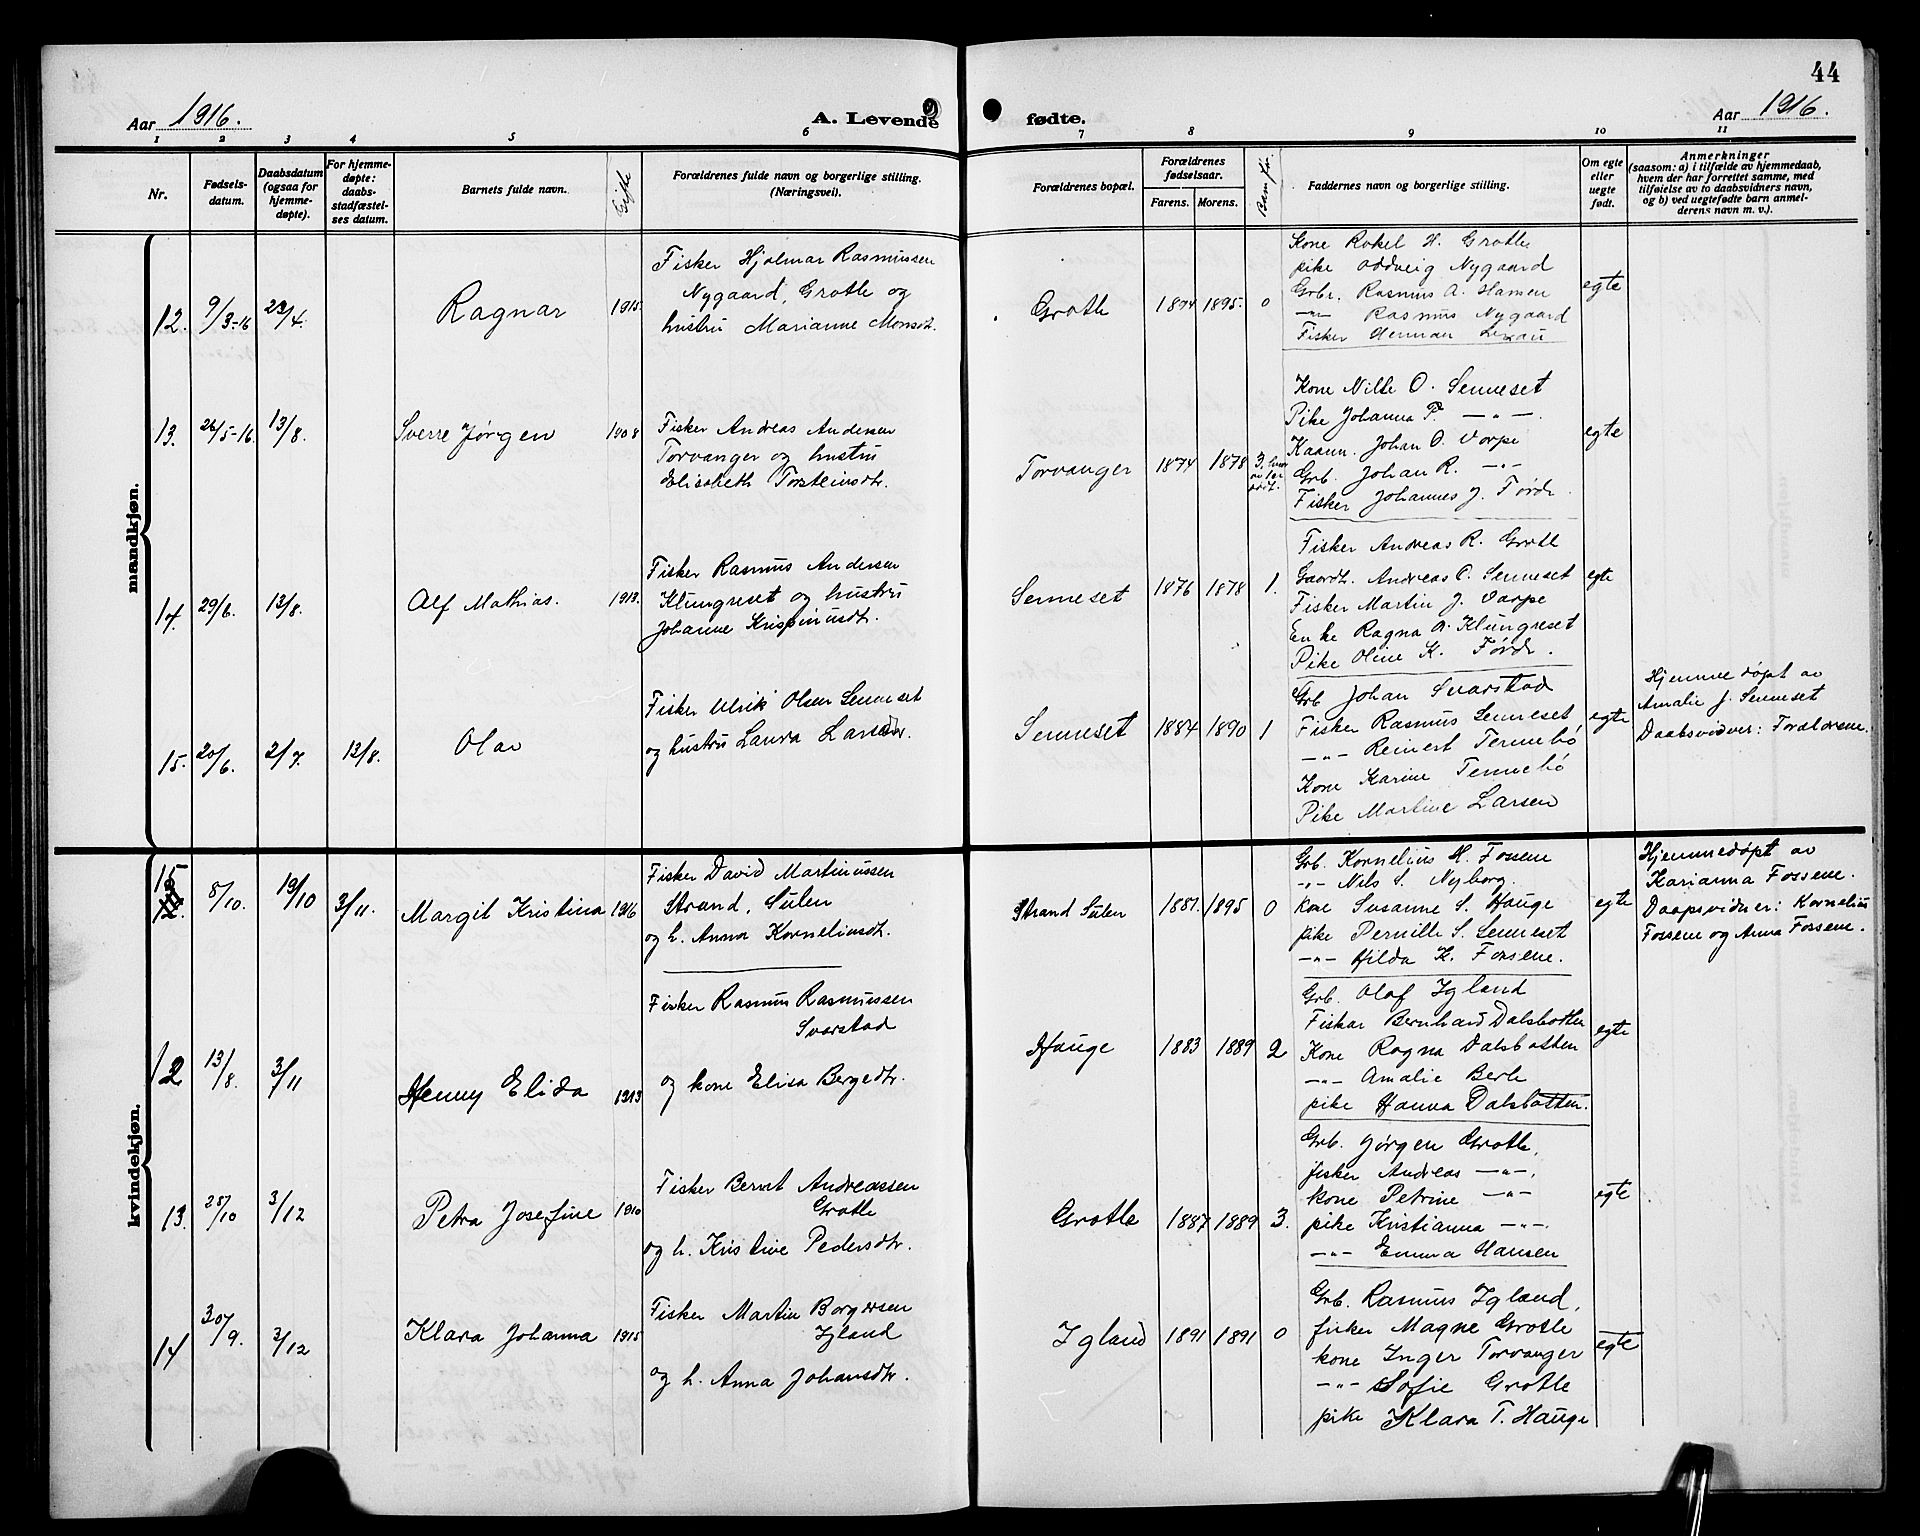 44
Aar 1916.
A. Levende
fødte.
Aar 1916.
1 2 3 4 5 6 7 8 9 10 11
Nr.
Fødsels-
datum.
Daabsdatum
(ogsaa for
hjemme-
døpte).
For hjemme-
døpte:
daabs-
stadfæstel-
ses datum.
Barnets fulde navn.
Gifte
Forældrenes fulde navn og borgerlige stilling.
(Næringsvei).
Forældrenes bopæl.
Forældrenes
fødselsaar.
Farens. Morens.
Faddernes navn og borgerlige stilling.
Om egte
eller
uegte
født.
Anmerkninger
(saasom: a) i tilfælde av hjemmedaab,
hvem der har forrettet samme, med
tilføielse av to daabsvidners navn,
og b) ved uegtefødte barn anmel-
derens navn m. v.).
mandkjøn.
12. 9/3-16 23/4. Ragnar 1915.
Fisker Hjalmar Rasmussen
Nygaard, Grotle og
hustru Marianne Monsdt.
Grotle 1874 1895. 0
Kone Rakel H. Grotle
pike Oddveig Nygaard
Grbr. Rasmus A. Hansen
-"- Rasmus Nygaard
Fisker Herman
egte
13. 26/5-16. 13/8. Sverre Jørgen 1908
Fisker Andreas Andersen
Torvanger og hustru
Elisabeth Torsteinsdt.
Torvanger 1874 1878 3.
Kone Nille O. Senneset
Pike Johanna P. -"-.
Johan O. Varpe
Grb. Johan R. -"-
Fisker Johannes J. Førde.
egte
14. 29/6. 13/8. Alf Mathias. 1913.
Fisker Rasmus Andersen
Klungreset og hustru
Johanne Krispinusdt.
Senneset 1876 1878 1.
Fisker Andreas R. Grotle
Gaardb. Andreas O. Senneset
Fisker Martin J. Varpe
Enke Ragna A. Klungreset
Pike Oline K. Førde.
egte
15. 20/6. 2/7. 13/8. Olav
Fisker Ulrik Olsen Senneset
og hustru Laura Larsdtr.
Senneset 1884 1890 1
Grb Johan Svarstad
Fisker Rasmus Senneset,
-"- Reinert Tennebø
Kone Karine Tennebø
Pike Martine Larsen
egte
Hjemmedøpt av
Amalie J. Senneset
Daabsvidner: Forældrene.
kvindekjøn.
15 8/10. 19/10 3/11. Margit Kristina 1916
Fisker David Martinussen
Strand, Sulen
og h. Anna Korneliusdt.
Strand Sulen 1887. 1895 0
Grb. Kornelius H. Fossene
-"- Nils S. Nyborg.
Kone Susanne S. Hauge
pike Pernille S. Senneset
-"- Hilda K. Fossene.
egte
Hjemmedøpt av
Karianna Fossene.
Daapsvidner: Kornelius
Fossene og Anna Fossene.
12 13/8. 3/11 Henny Elida 1913
Fisker Rasmus Rasmussen
Svarstad
og kone Elisa Bergedtr.
Hauge 1883 1889 2
Grb. Olaf Igland
Fisker Bernhard Dalsbotten
Kone Ragna Dalsbotten
-"- Amalie Berle
pike Hanna Dalsbotten.
egte
13. 25/10 3/12 Petra Josefine 1910
Fisker Bernt Andreassen
Grotle
og h. Kristine Pedersdtr.
Grotle 1887 1889 3.
Grb. Jørgen Grotle,
fisker Andreas -"-,
kone Petrine -"-
pike Kristianna -"-.
-"- Emma Hansen
egte
14 30/9. 3/12 Klara Johanna 1915
Fisker Martin Borgersen
Igland
og h. Anna Johansdtr.
Igland 1891 1891 0
Grb. Rasmus Igland,
fisker Magne Grotle
kone Inger Torvanger
-"- Sofie Grotle
pike Klara T. Hauge
egte